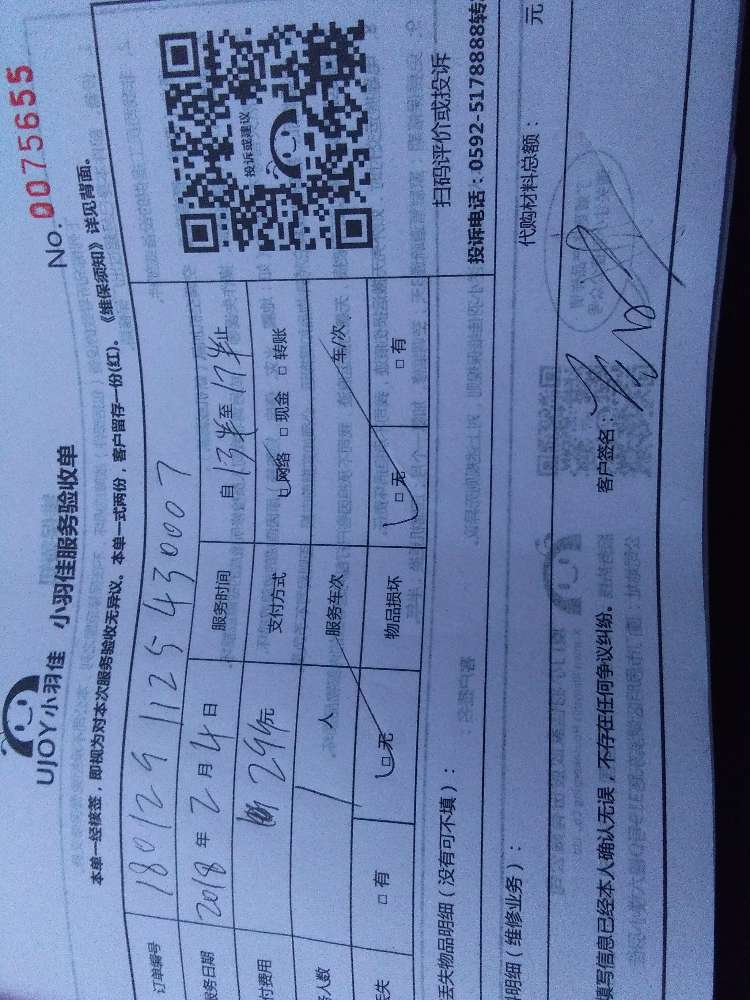 UJOY小羽佳 小羽佳服务验收单
No. 0075655
本单一经核签，即视为对本次服务验收无异议。本单一式两份，客户留存一份(红)。《维保须知》详见背面。
订单编号 1801291125430007
服务日期 2018 年 2 月 4 日 服务时间 自 13半 至 17半 止
付费用 元 支付方式 □网络 □现金 □转账
人数 1 人 服务车次 车/次
丢失 □有 □无 物品损坏 □无 □有
投诉或建议
扫码评价或投诉
投诉电话：0592-5178888转
丢失物品明细（没有可不填）：
明细（维修业务）： 代购材料总额： 元
填写信息已经本人确认无误，不存在任何争议纠纷。 客户签名：